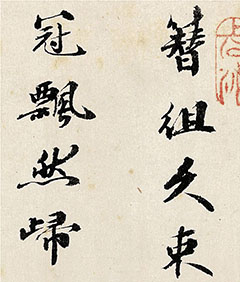 簪組久束
冠飄然歸